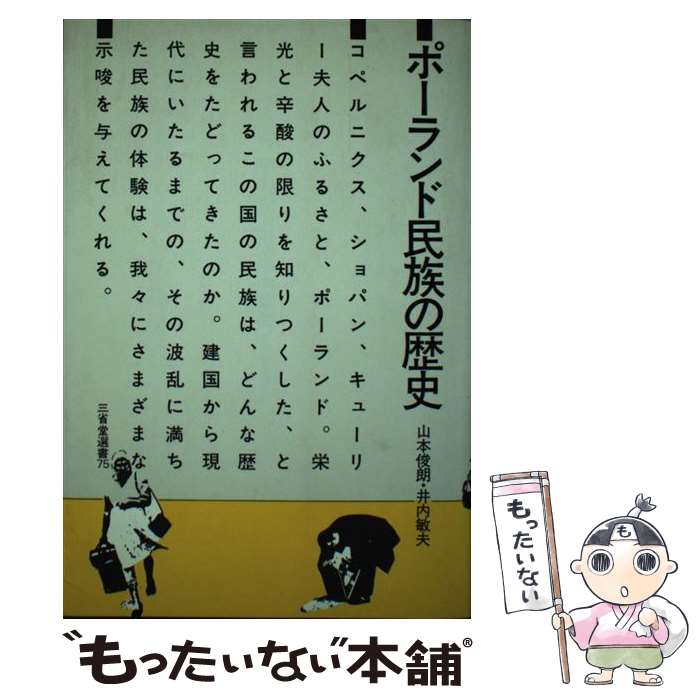 ポーランド民族の歴史
山本俊朗・井内敏夫
コペルニクス、ショパン、キューリ
ー夫人のふるさと、ポーランド。栄
光と辛酸の限りを知りつくした、と
言われるこの国の民族は、どんな歴
史をたどってきたのか。建国から現
代にいたるまでの、その波乱に満ち
た民族の体験は、我々にさまざまな
示唆を与えてくれる。
三省堂選書75
もったいない
も
"もったいない"本舗®